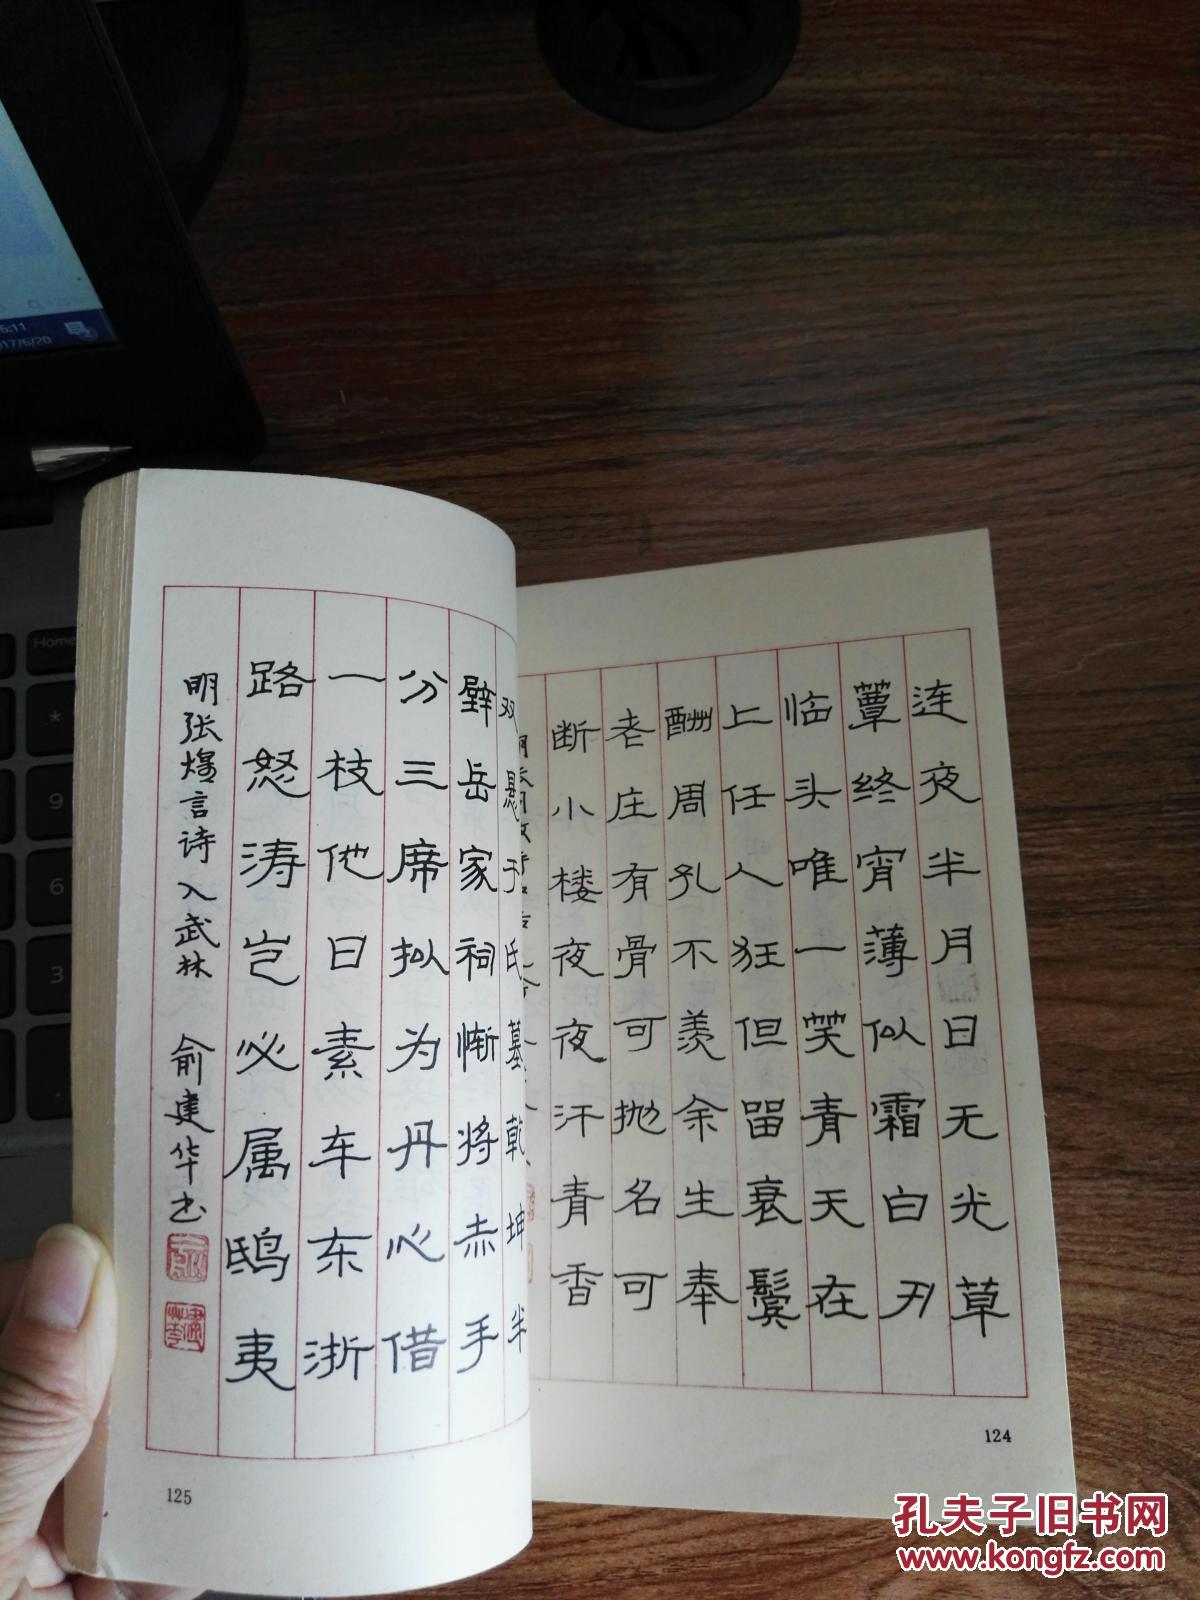 连夜半月日无光草
蕈终宵薄似霜白刃
临头唯一笑青天在
上任人狂但留衰鬓
酬周孔不羡余生奉
老庄有骨可抛名可
断小楼夜夜汗青香
124
双悬于氏墓乾坤半
壁岳家祠惭将赤手
分三席拟为丹心借
一枝他日素车东浙
路怒涛岂必属鸱夷
明张煌言诗 入武林 俞建华书
125
Home
9
6
3
孔夫子旧书网
www.kongfz.com